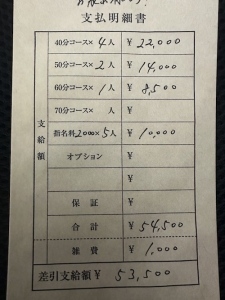 支払明細書
40分コース× 4 人 ¥ 22,000
50分コース× 2 人 ¥ 14,000
60分コース× 1 人 ¥ 8,500
70分コース× 人 ¥
指名料 2000 × 5 人 ¥ 10,000
オプション ¥
¥
保証 ¥
合計 ¥ 54,500
雑費 ¥ 1,000
支給額
差引支給額 ¥ 53,500